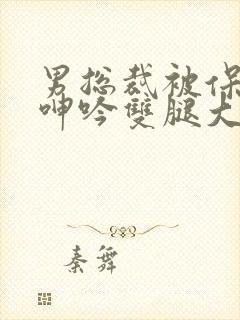 男总裁被保
呻吟雙腿大
秦舞